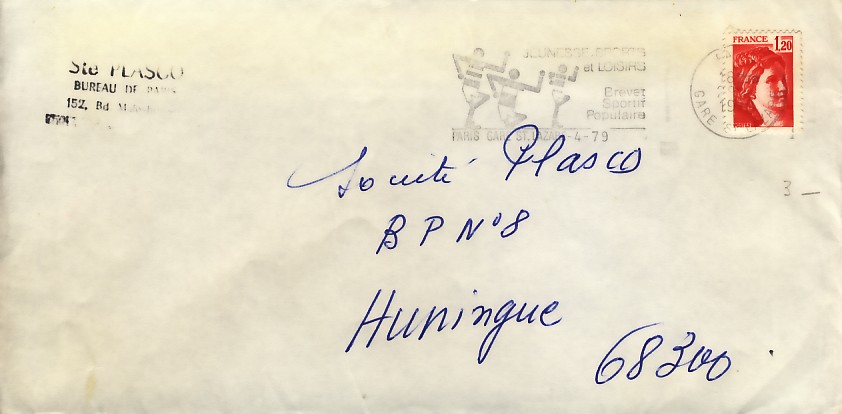 Sté PLASCO
BUREAU DE PARIS
152, Bd
JEUNESSE.SPORTS
et LOISIRS
Brevet
Sportif
Populaire
PARIS GARE ST.LAZARE -4-79
FRANCE 1,20
GARE
Société Plasco
BP N°8
Huningue
68300
3 –